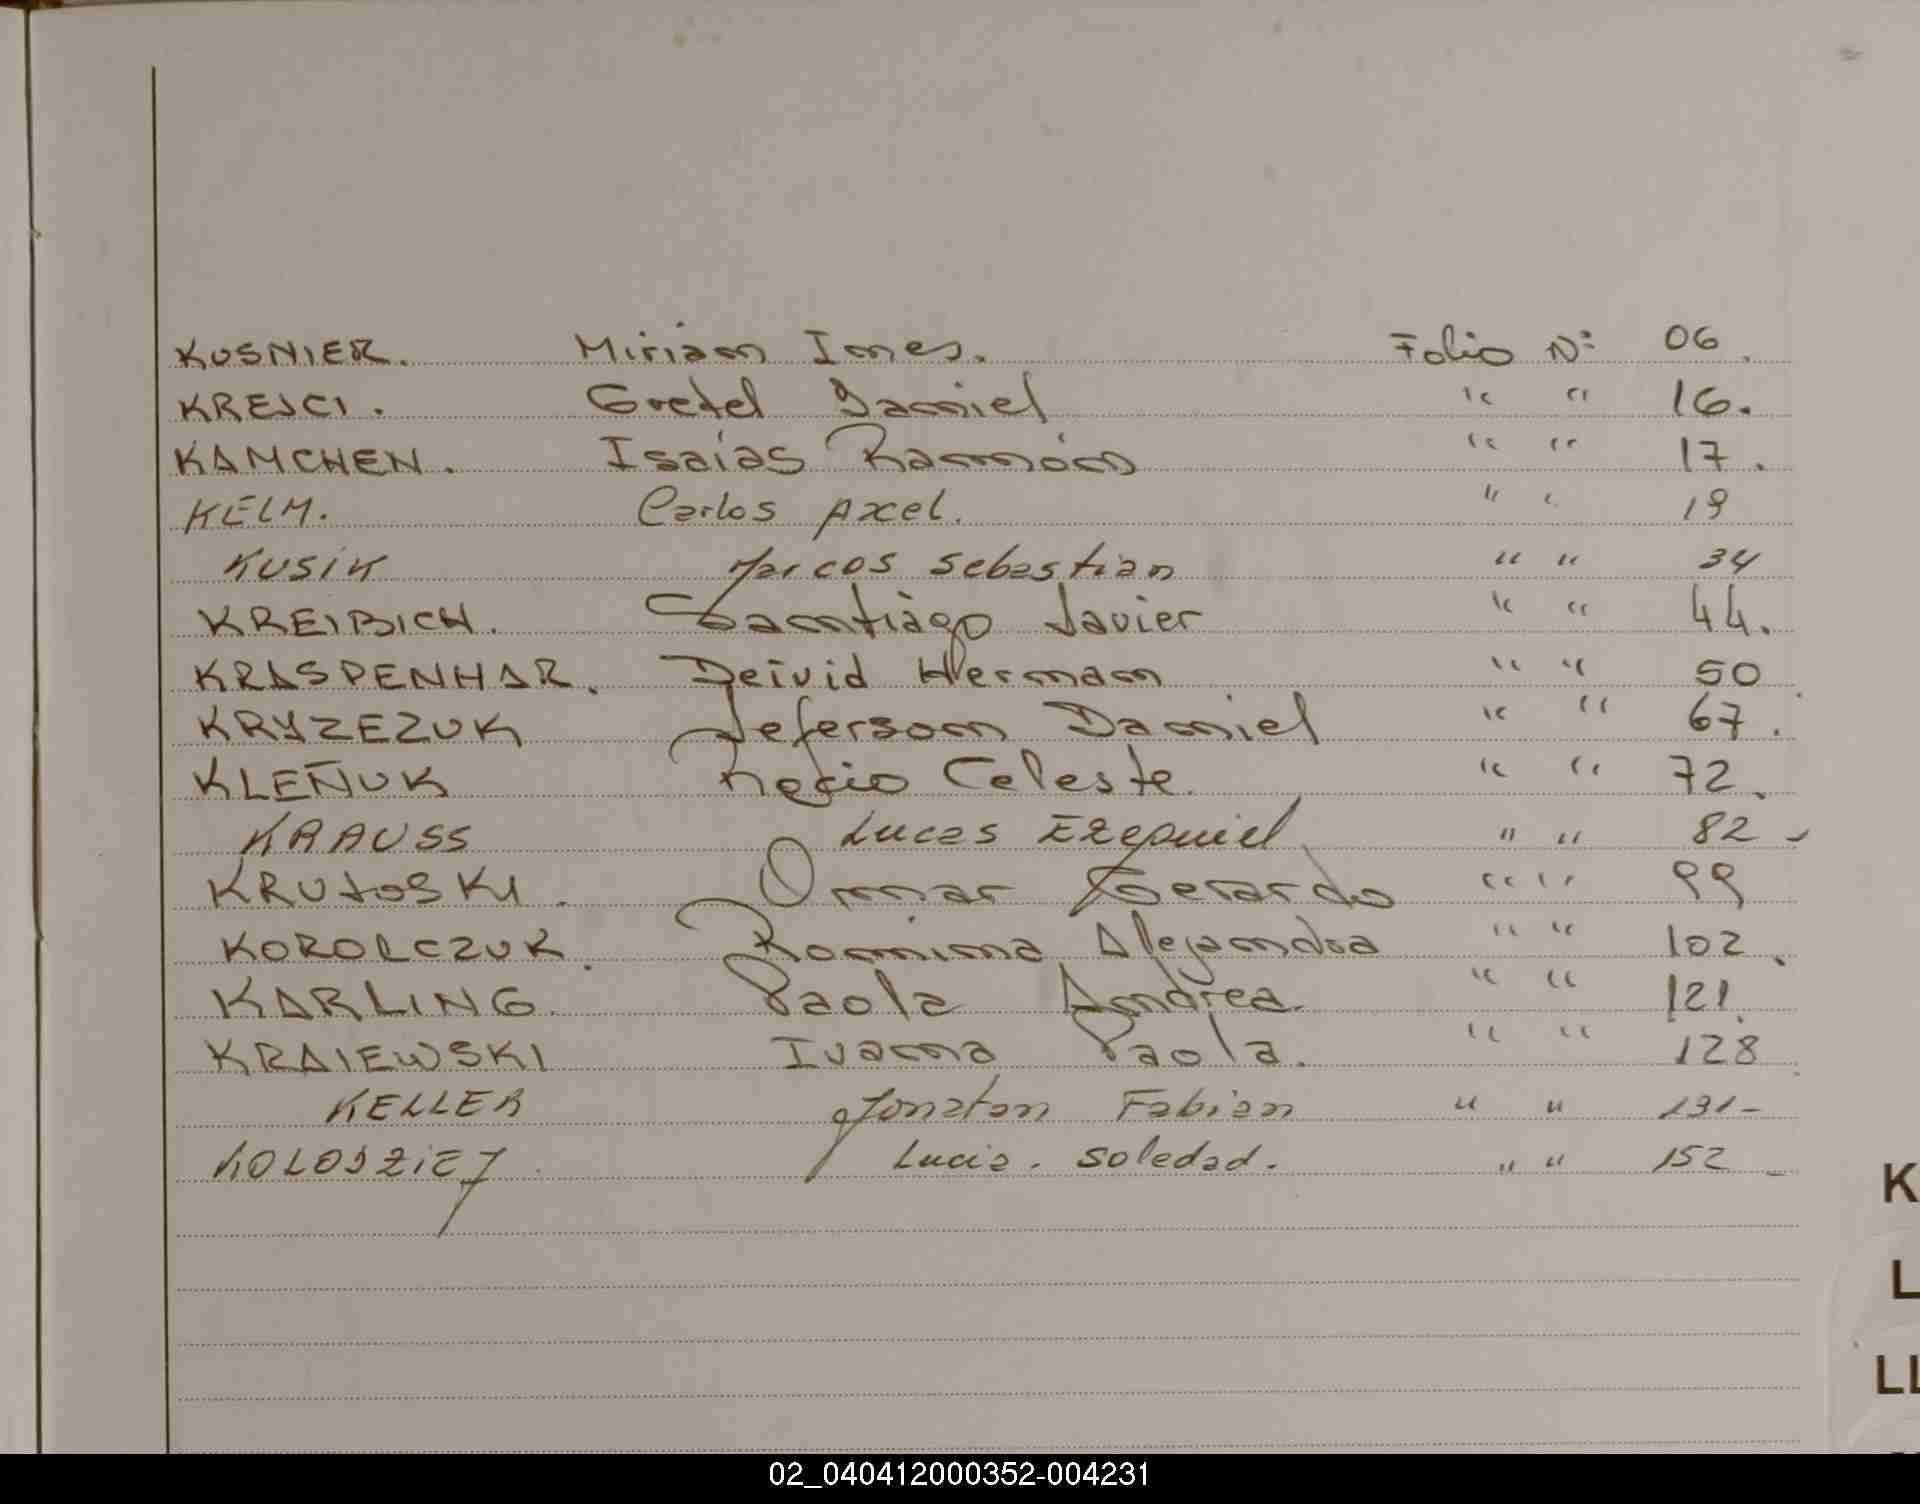 KUSNIER. Miriam Ines. Folio Nº 06.
KREJCI. Gretel Daniel " " 16.
KAMCHEN. Isaías Ramón " " 17.
KELM. Carlos Axel. " " 19
KUSIK Marcos Sebastian " " 34
KREIBICH. Santiago Javier " " 44.
KRASPENHAR. Deivid Hernan " " 50.
KRYZEZUK Jeferson Daniel " " 67.
KLEÑUK Rocio Celeste. " " 72.
KRAUSS Lucas Ezequiel " " 82-
KRUTOSKI. Omar Gerardo " " 99
KOROLCZUK. Romina Alejandra " " 102.
KARLING. Paola Andrea. " " 121.
KRAIEWSKI Ivana Paola. " " 128.
KELLER Jonatan Fabian " " 131-
Lucia. Soledad. " " 152-
K
L
LL
02_040412000352-004231